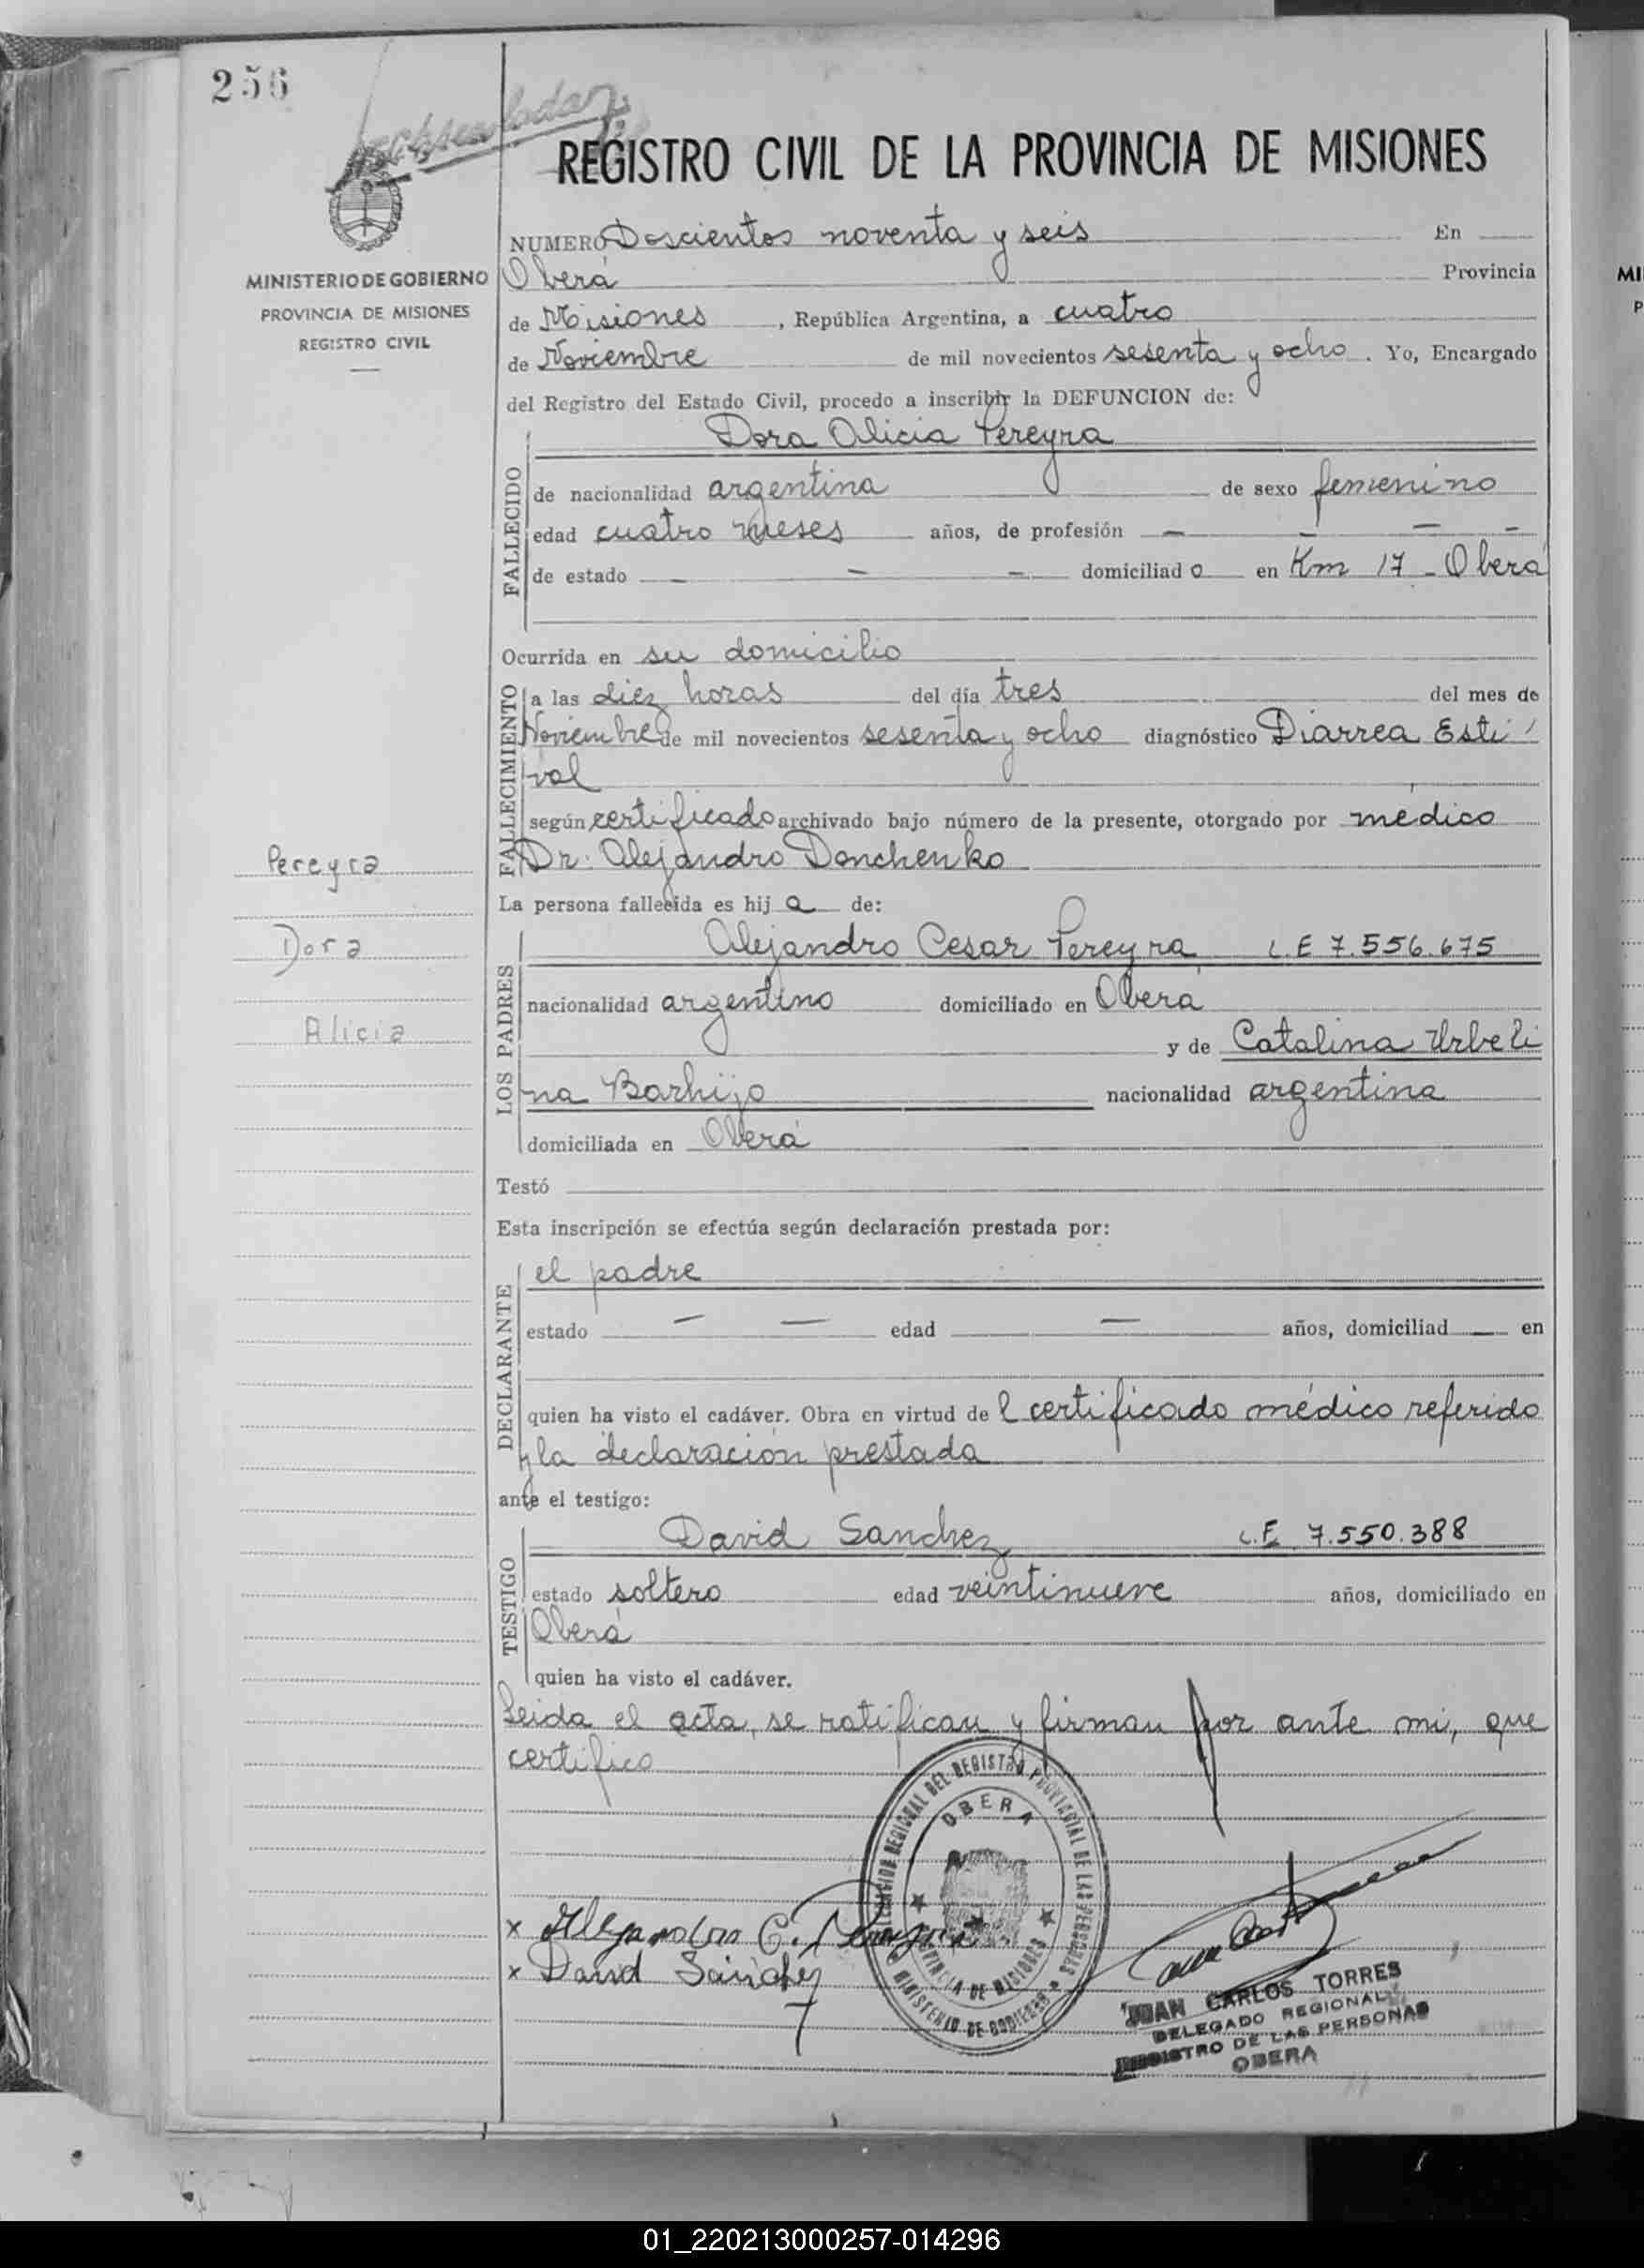 256
REGISTRO CIVIL DE LA PROVINCIA DE MISIONES
MINISTERIO DE GOBIERNO
PROVINCIA DE MISIONES
REGISTRO CIVIL
NUMERO Doscientos noventa y seis En
Oberá Provincia
de Misiones, República Argentina, a cuatro
de Noviembre de mil novecientos sesenta y ocho. Yo, Encargado
del Registro del Estado Civil, procedo a inscribir la DEFUNCION de:
FALLECIDO
Dora Alicia Pereyra
de nacionalidad argentina de sexo femenino
edad cuatro meses años, de profesión — — — —
de estado — — — domiciliad o en Km 17 - Oberá
Ocurrida en su domicilio
FALLECIMIENTO
a las diez horas del día tres del mes de
Noviembre de mil novecientos sesenta y ocho diagnóstico Diarrea Esti
val
según certificado archivado bajo número de la presente, otorgado por médico
Dr. Alejandro Donchenko
Pereyra
Dora
Alicia
La persona fallecida es hij a de:
LOS PADRES
Alejandro Cesar Pereyra L.E 7.556.675
nacionalidad argentino domiciliado en Oberá
y de Catalina Urbeli
na Barhijo nacionalidad argentina
domiciliada en Oberá
Testó
Esta inscripción se efectúa según declaración prestada por:
DECLARANTE
el padre
estado — — edad — años, domiciliad — en
quien ha visto el cadáver. Obra en virtud de l certificado médico referido
y la declaración prestada
ante el testigo:
TESTIGO
David Sanchez L.E 7.550.388
estado soltero edad veintinueve años, domiciliado en
Oberá
quien ha visto el cadáver.
Leida el acta, se ratifican y firman por ante mi, que
certifico
DELEGACION REGIONAL DEL REGISTRO PROVINCIAL DE LAS PERSONAS
OBERA
PROVINCIA DE MISIONES
MINISTERIO DE GOBIERNO
x Alejandro C. Pereyra
x David Sanchez
JUAN CARLOS TORRES
DELEGADO REGIONAL
REGISTRO DE LAS PERSONAS
OBERA
01_220213000257-014296